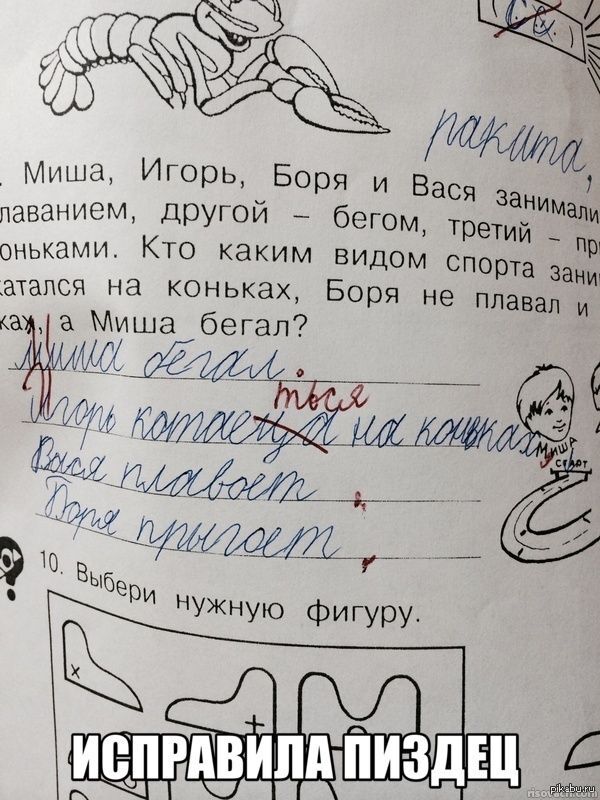 ракита,
. Миша, Игорь, Боря и Вася занимали
лаванием, другой – бегом, третий – пр
оньками. Кто каким видом спорта зани
катался на коньках, Боря не плавал и
ках, а Миша бегал?
Миша бегал.
ться
Игорь катаеца на коньках,
Вася плавоет ,
Боря прыгает ,
МИША
СТАРТ
10. Выбери нужную фигуру.
ИСПРАВИЛА ПИЗДЕЦ
pikabu.ru
risovach.com